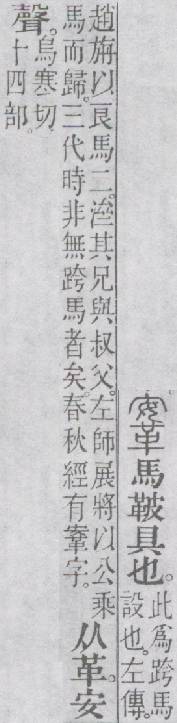 鞌馬鞁具也。
此爲跨馬
設也。左傳。
趙旃以良馬二。濟其兄與叔父。左師展將以公乘
馬而歸。三代時非無跨馬者矣。春秋經有鞌字。
从革。安
聲。
烏寒切。
十四部。